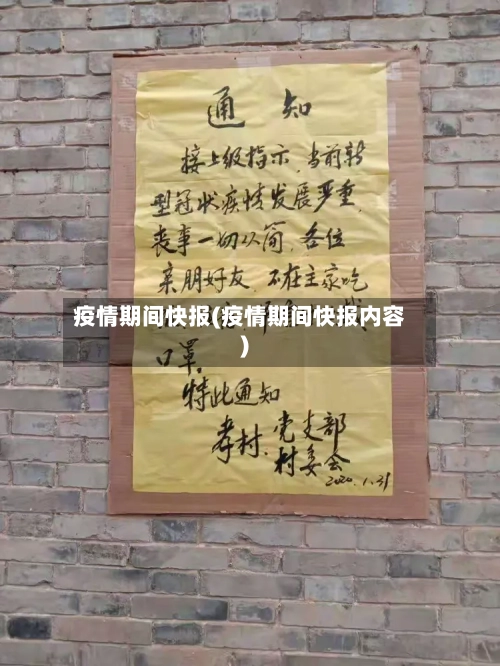 通知
接上级指示,当前新
型冠状疾情发展严重,
丧事一切从简,各位
亲朋好友,不在主家吃
疫情期间快报(疫情期间快报内容
)
口罩。
特此通知
孝村.党支部
村委会
2020.1.31